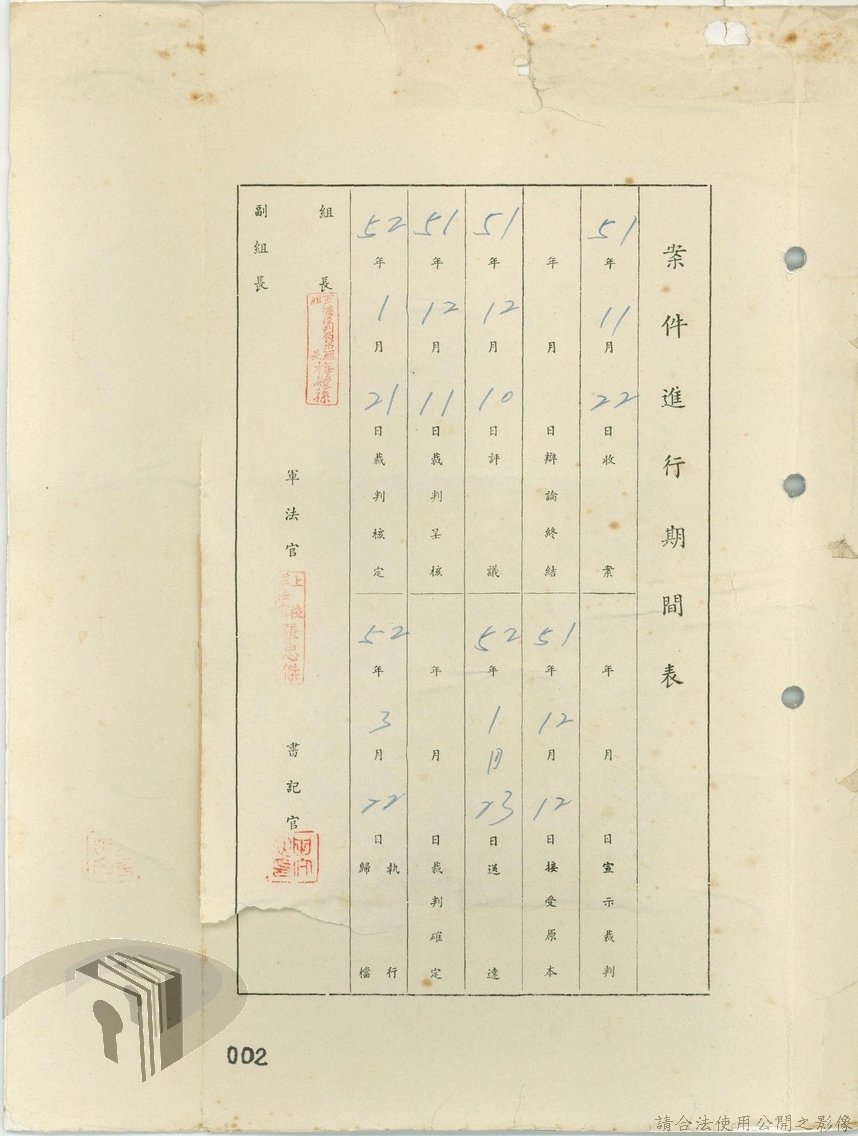 案件進行期間表
51年11月22日收案
年月日宣示裁判
年月日辯論終結
51年12月12日接受原本
51年12月10日評議
52年1月23日送達
51年12月11日裁判呈核
年月日裁判確定
52年1月21日裁判核定
52年3月22日執行歸檔
組長
副組長
軍法官
上校
張忠傑
書記官
002
請合法使用公開之影像